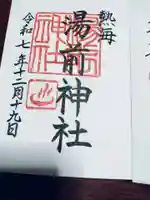 熱海
湯前神社
令和七年十二月十九日